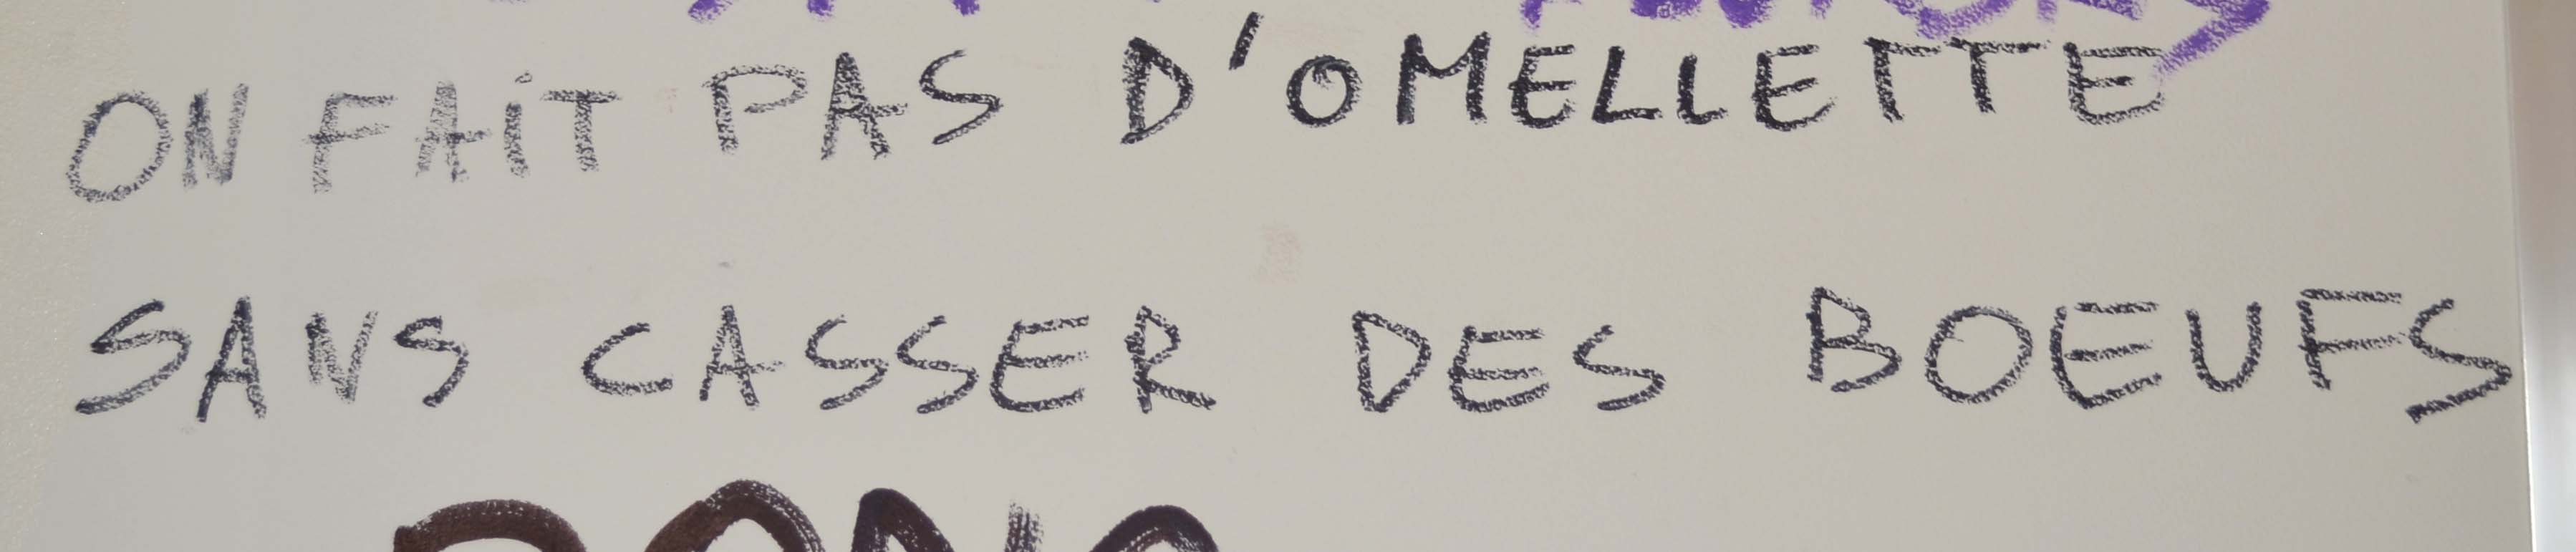 ON FAIT PAS D'OMELLETTE
SANS CASSER DES BOEUFS